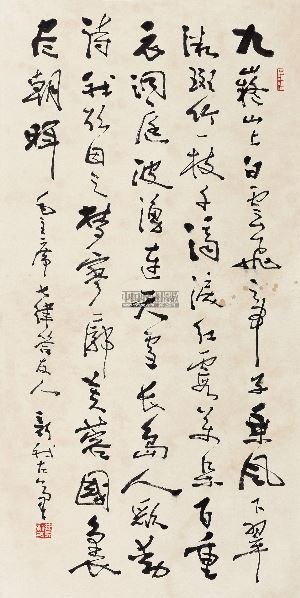 九嶷山上白雲飛帝子乘風下翠
微斑竹一枝千滴淚紅霞萬朵百重
衣洞庭波湧連天雪長島人歌動
詩我欲因之夢寥廓芙蓉國裏
尽朝暉
毛主席七律答友人 新我左筆